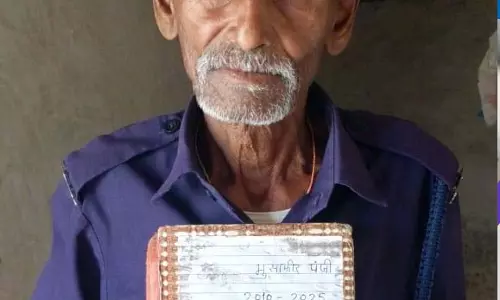 मुसाफीर पंजी
2010-2025